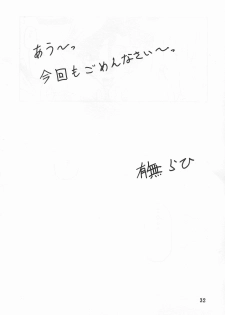 あう〜っ
今回もごめんなさい〜っ。
有無らひ
32